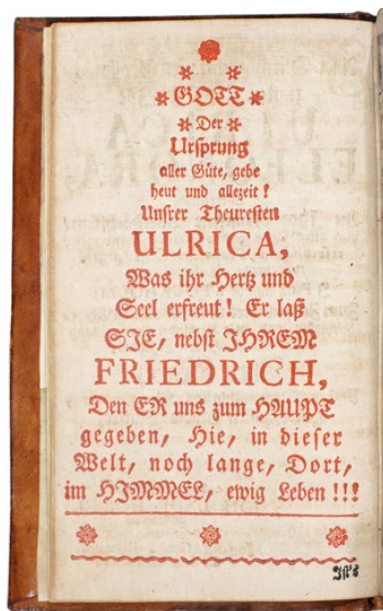 GOTT
Der
Ursprung
aller Güte, gebe
heut und allezeit!
Unsrer Theuresten
ULRICA,
Was ihr Hertz und
Seel erfreut! Er laß
SIE, nebst IHREM
FRIEDRICH,
Den ER uns zum HAUPT
gegeben, Hie, in dieser
Welt, noch lange, Dort,
im HIMMEL, ewig Leben!!!